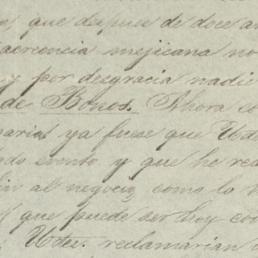 que despues de doce a
acreencia mejicana no
y por desgracia nadie
de Bonos. Ahora co
ya fuese que Uds
evento y que he re
al negocio, como lo
que puede ser hoy co
Udes. reclamarian